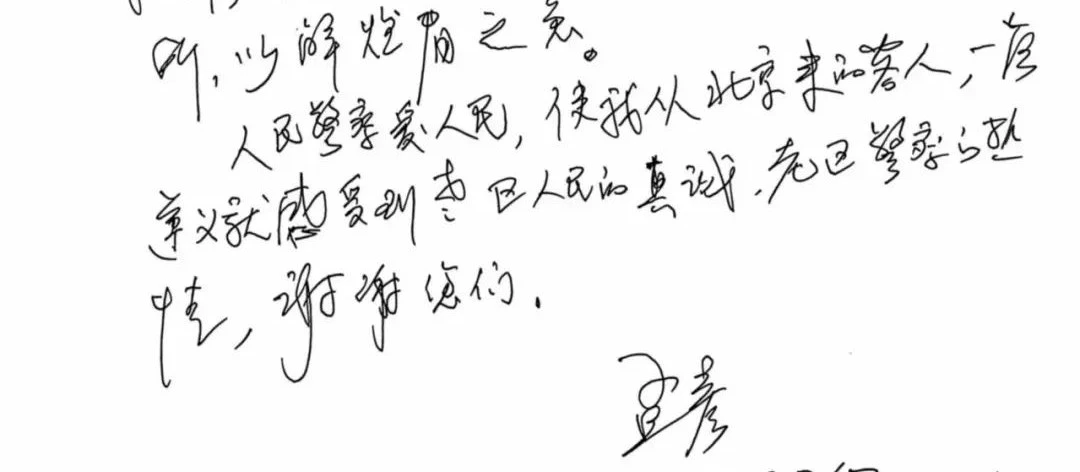 所,以解燃眉之急。
人民警察爱人民,使我从北京来的客人,一落
遵义就感受到老区人民的真诚,老区警察的热
情,谢谢您们.
孟彦